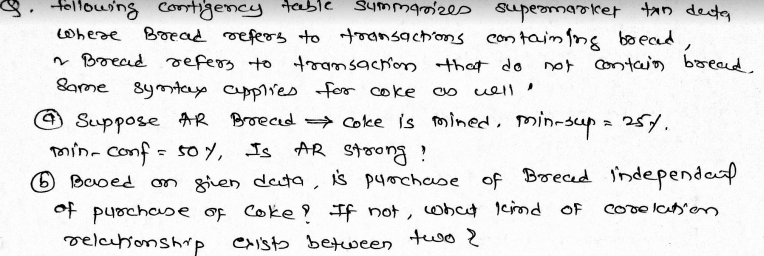 Q. following contigency table summarizes supermarket txn data
where Bread refers to transactions containing bread,
~ Bread refers to transaction that do not contain bread.
Same syntax applies for coke as well.
(a) Suppose AR Bread ⇒ coke is mined. min-sup = 25%.
min-conf = 50%, Is AR strong ?
(b) Based on given data, is purchase of Bread independant
of purchase of Coke? If not, what kind of corelation
relationship exists between two ?